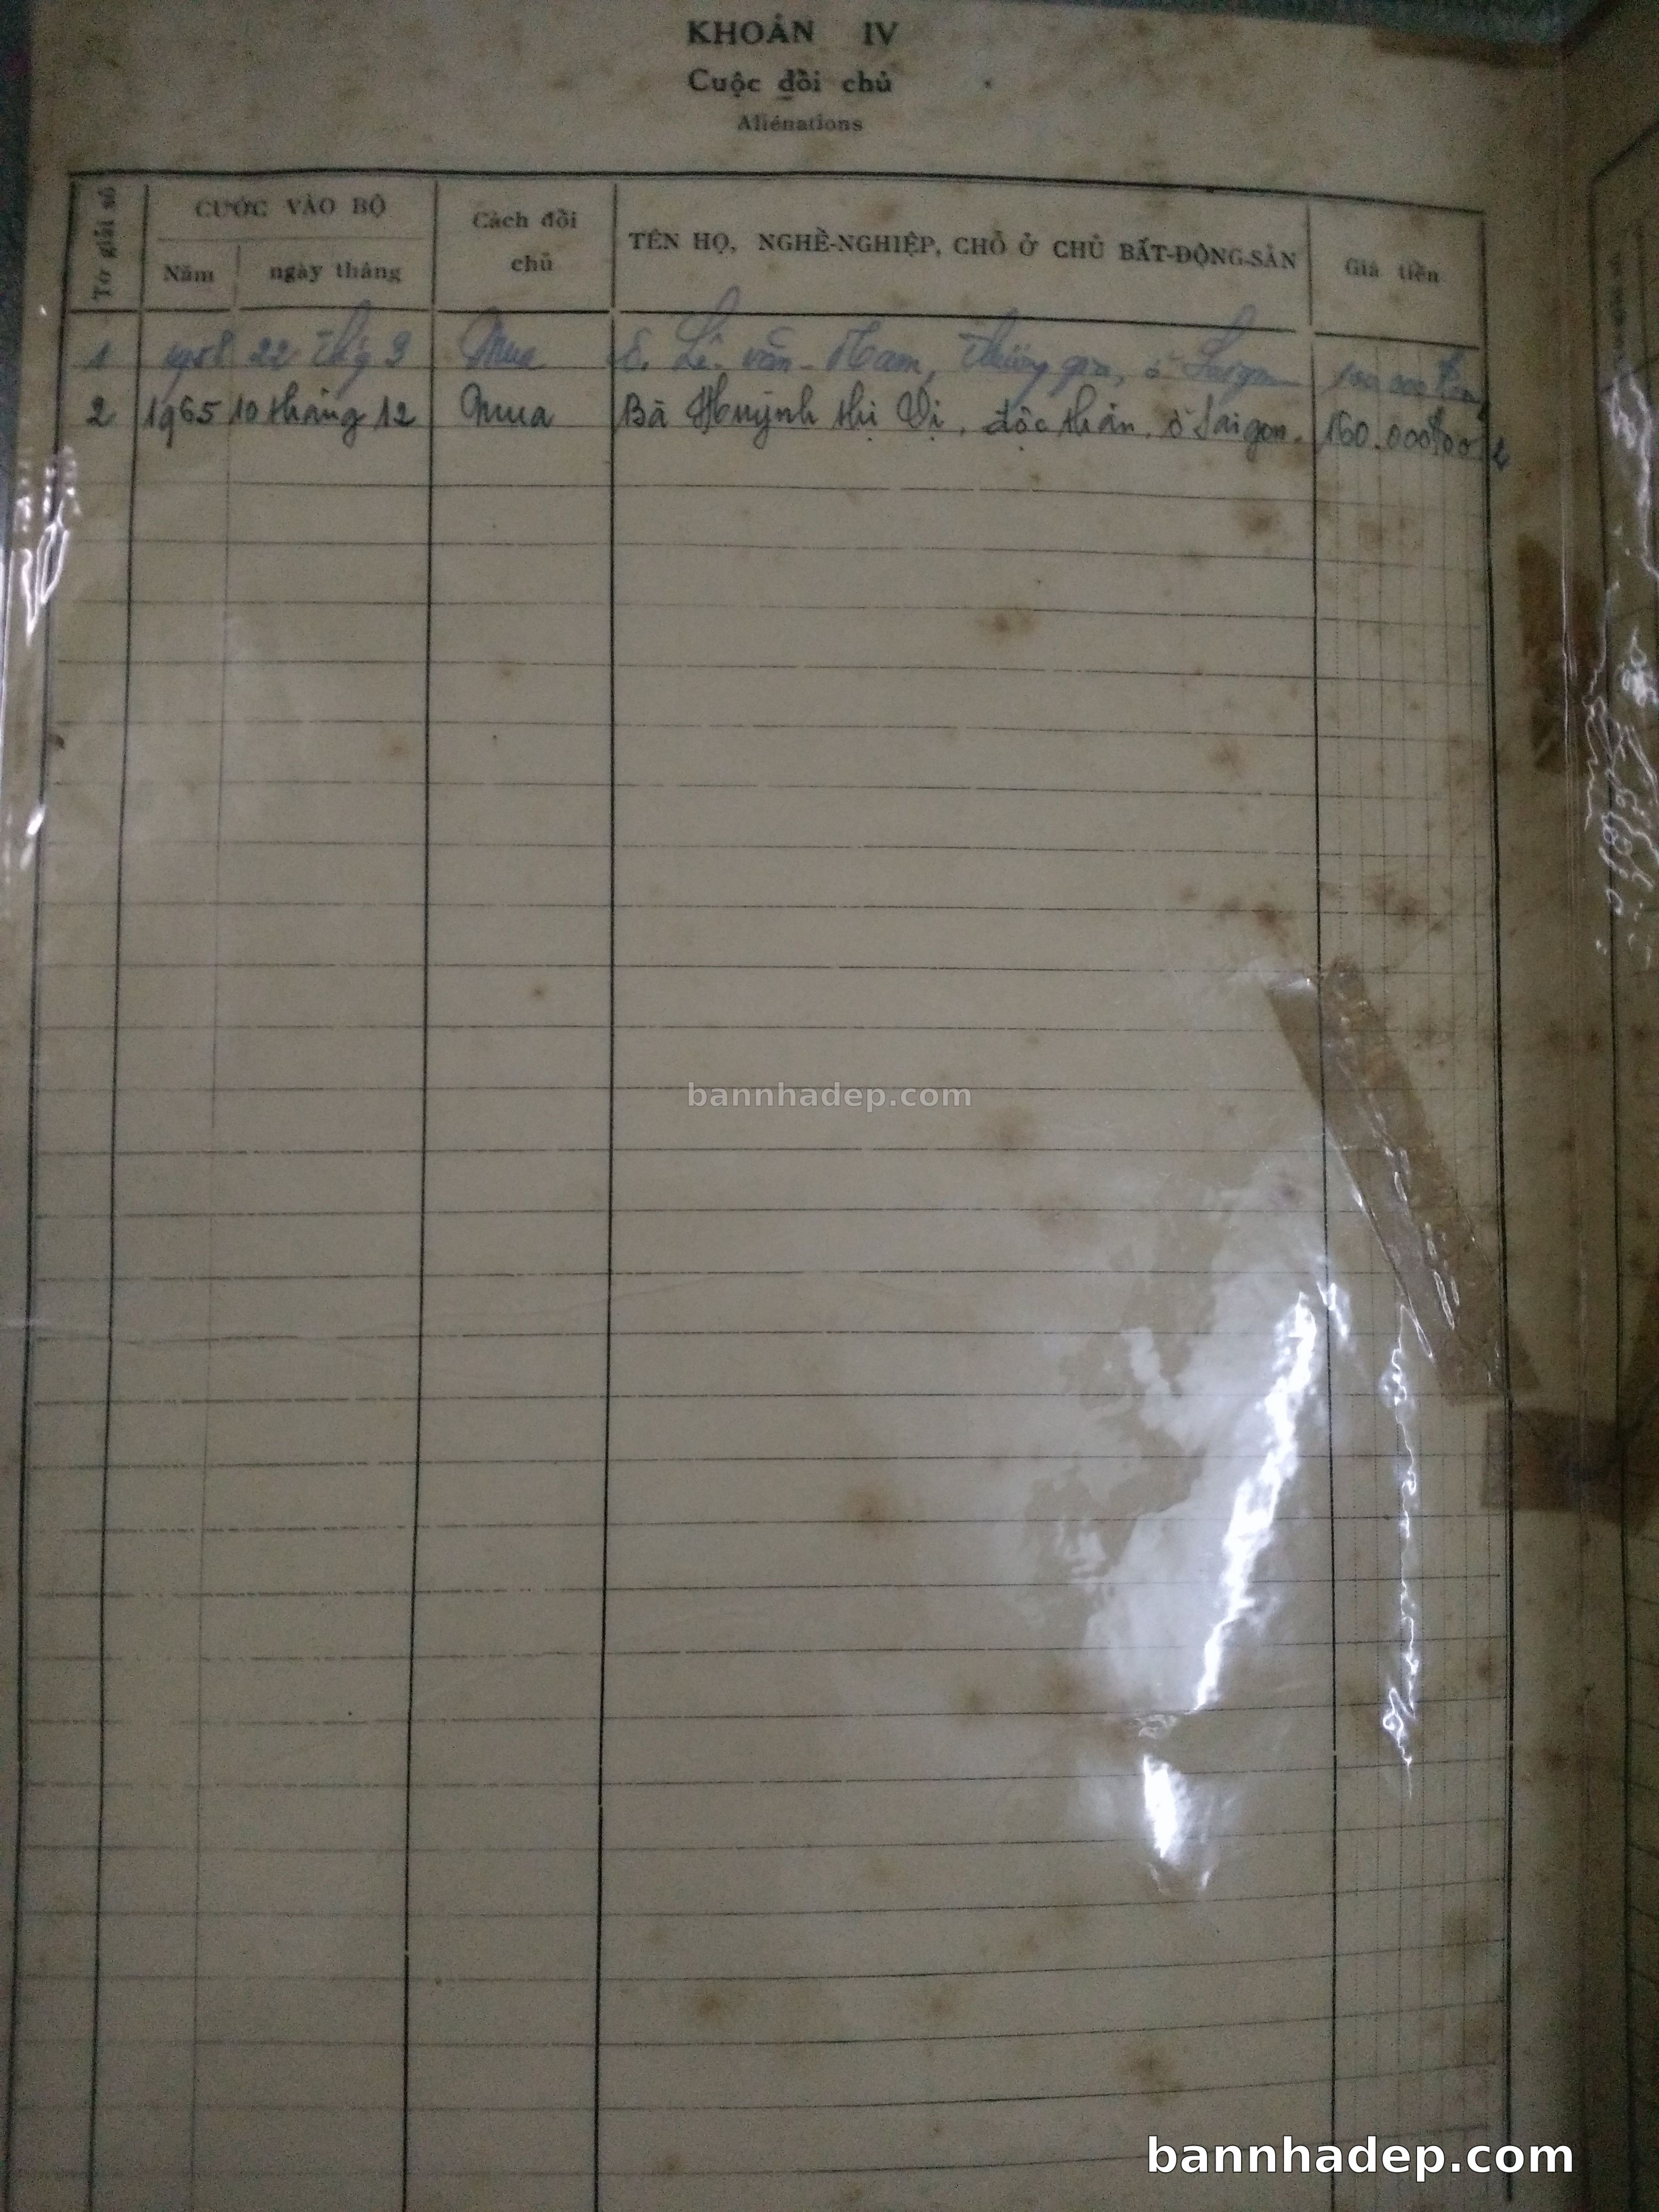 KHOẢN IV
Cuộc đổi chủ
Aliénations
Tờ giải số
CƯỚC VÀO BỘ
Năm
ngày tháng
Cách đổi
chủ
TÊN HỌ, NGHỀ-NGHIỆP, CHỖ Ở CHỦ BẤT-ĐỘNG-SẢN
Giá tiền
1 1958 22 thg 9 Mua Ô. Lê-văn-Nam, Thương gia, ở Saigon
2 1965 10 tháng 12 Mua Bà Huỳnh thị Vị, độc thân, ở Saigon. 160.000$00
bannhadep.com
bannhadep.com